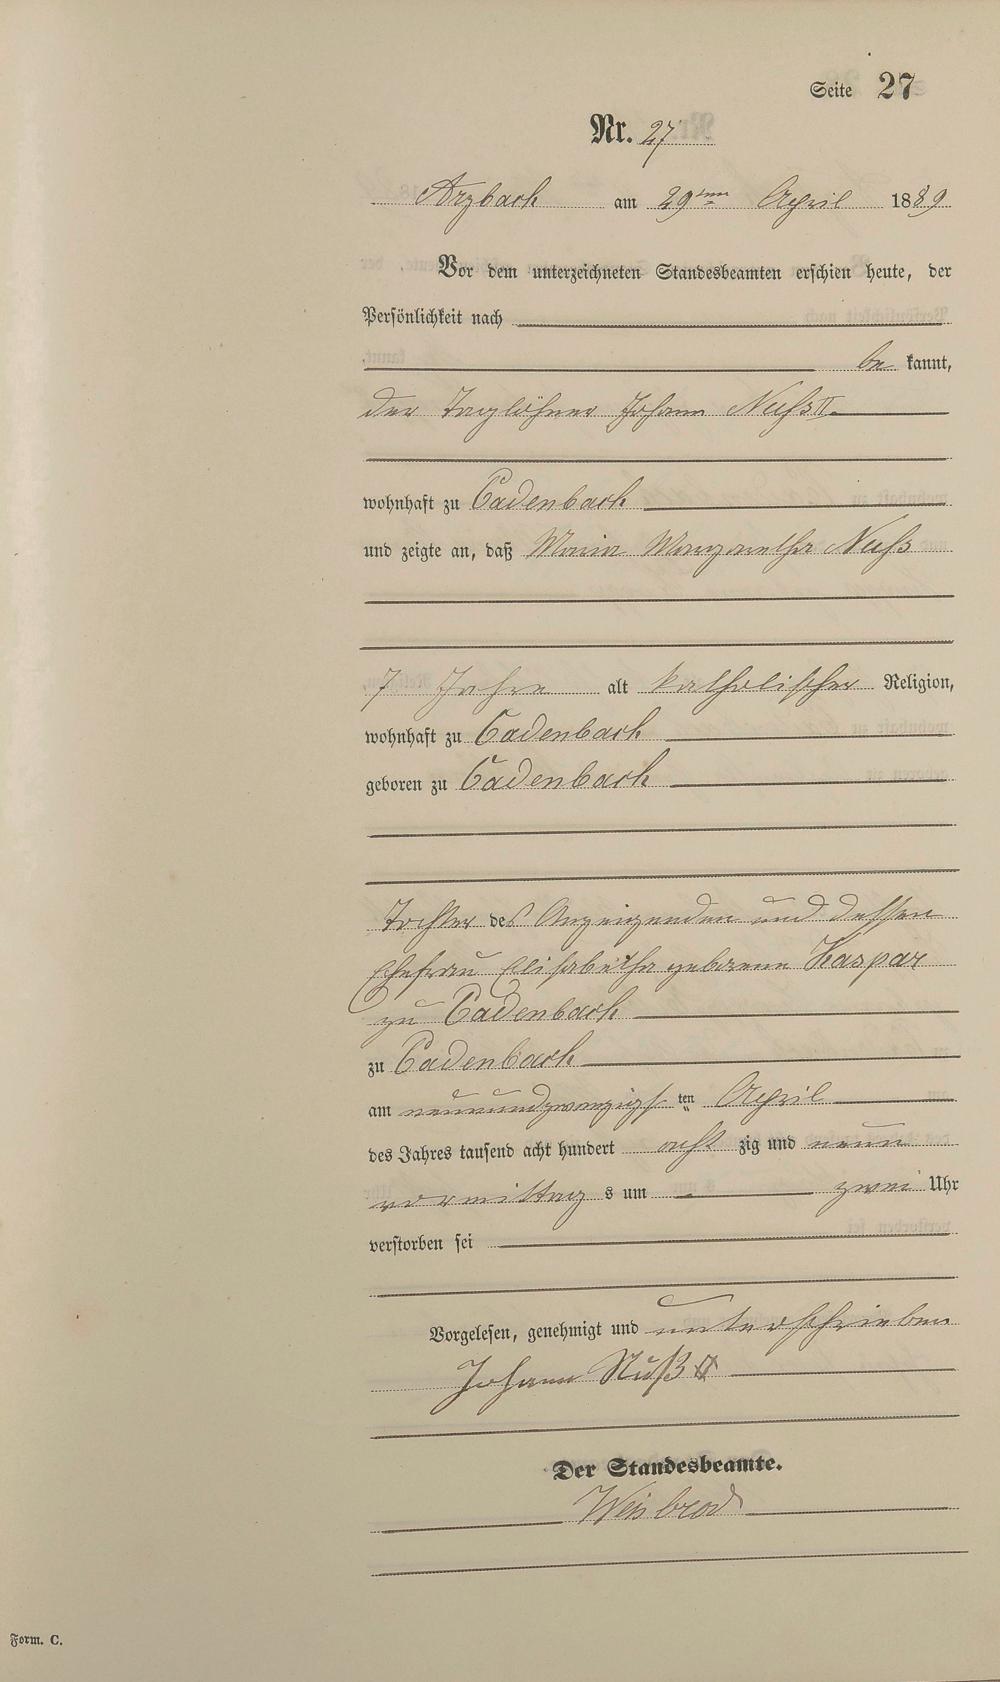 Seite 27
Nr. 27
Arzbach am 29ten April 1889
Vor dem unterzeichneten Standesbeamten erschien heute, der
Persönlichkeit nach
be kannt,
der Taglöhner Johann Nuß II.
wohnhaft zu Cadenbach
und zeigte an, daß Maria Margaretha Nuß
7 Jahre alt katholischer Religion,
wohnhaft zu Cadenbach
geboren zu Cadenbach
Tochter des Anzeigenden und dessen
Ehefrau Elisabetha geborene Kaspar
zu Cadenbach
zu Cadenbach
am neunundzwanzigsten April
des Jahres tausend acht hundert acht zig und neun
vormittag s um zwei Uhr
verstorben sei
Vorgelesen, genehmigt und unterschrieben
Johann Nuß II
Der Standesbeamte.
Weisbrod
Form. C.